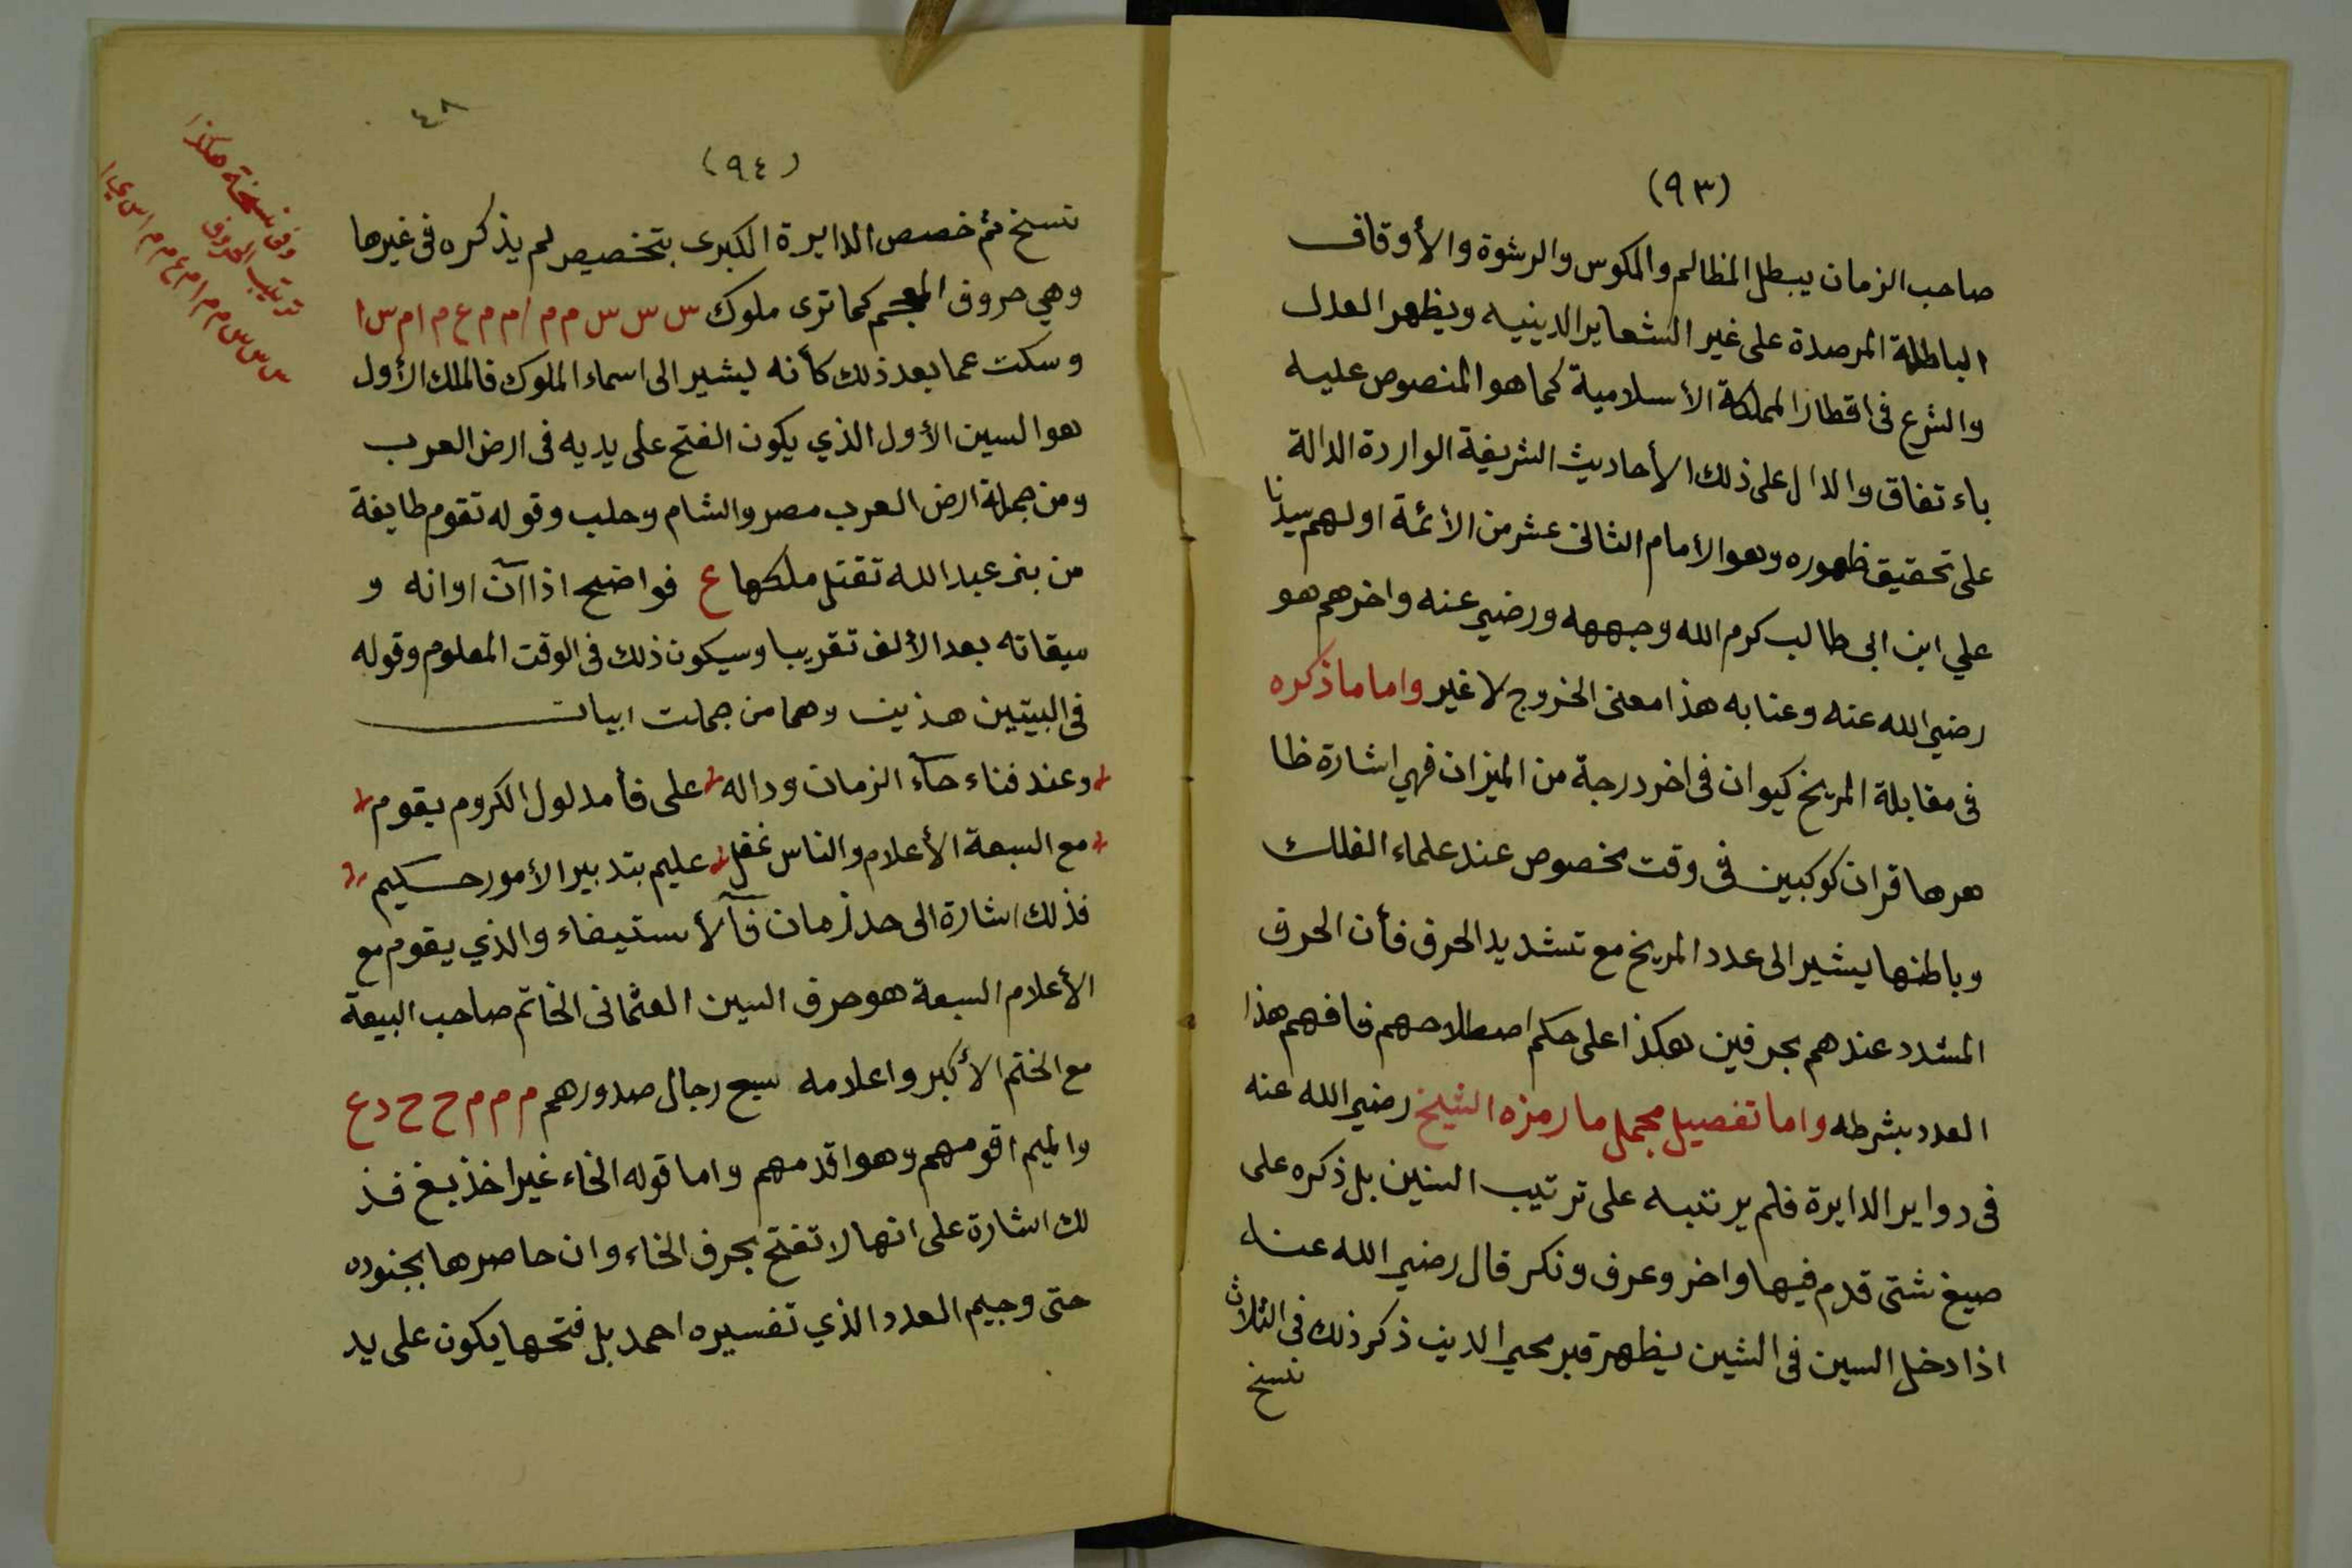 (٩٣)
صاحب الزمان يبطل المظالم والمكوس والرشوة والأوقاف
الباطلة المرصدة على غير الشعاير الدينيه ويظهر العدل
والشرع فى اقطار المملكة الأسلامية كما هو المنصوص عليه
باء تفاق والدال على ذلك الأحاديث الشريفة الواردة الدالة
على تحقيق ظهوره وهو الامام الثانى عشر من الأئمة اولهم سيدنا
علي ابن ابى طالب كرم الله وجهه ورضي عنه واخرهم هو
رضي الله عنه وعنا به هذا معنى الخروج لا غير واما ما ذكره
فى مقابلة المريخ كيوان فى اخر درجة من الميزان فهي اشارة ظا
هرها قران كوكبين فى وقت مخصوص عند علماء الفلك
وباطنها يشير الى عدد المريخ مع تشديد الحرف فأن الحرف
المشدد عندهم بحرفين هكذا على حكم اصطلاحهم فافهم هذا
العدد بشرطه واما تفصيل مجمل ما رمزه الشيخ رضي الله عنه
فى دواير الدايرة فلم يرتبه على ترتيب السنين بل ذكره على
صيغ شتى قدم فيها واخر وعرف ونكر قال رضي الله عنه
اذا دخل السين فى الشين يظهر قبر محي الدين ذكر ذلك فى الثلاث
نسخ
٤٨
(٩٤)
نسخ ثم خصص الدايرة الكبرى بتخصيص لم يذكره فى غيرها
وهي حروف المعجم كما ترى ملوك س س س س م م ا م م ع م ا م س ا
وسكت عما بعد ذلك كأنه يشير الى اسماء الملوك فالملك الأول
هو السين الأول الذي يكون الفتح على يديه فى ارض العرب
ومن جملة ارض العرب مصر والشام وحلب وقوله تقوم طايفة
من بنى عبد الله تقتل ملكها ع فواضح اذا آن اوانه و
ميقاته بعد الألف تقريبا وسيكون ذلك فى الوقت المعلوم وقوله
فى البيتين هذين وهما من جملت ابيات
وعند فناء خاء الزمان وداله على فأ مدلول الكروم يقوم
مع السبعة الأعلام والناس غفل عليم بتدبير الأمور حكيم
فذلك اشارة الى حد زمان فآ لأستيفاء والذي يقوم مع
الأعلام السبعة هو حرف السين العثمانى الخاتم صاحب البيعة
مع الختم الأكبر واعلامه سبع رجال صدورهم م م م م ح ح د ع
والميم اقومهم وهو اقدمهم واما قوله الخاء غير اخذ بغ فذ
لك اشارة على انها لا تفتح بحرف الخاء وان حاصرها بجنوده
حتى وجيم العدد الذي تفسيره احمد بل فتحها يكون على يد
وفى نسخة هكذا
ترتيب الحروف
س س س م م ا م ع م م ا س ي ا